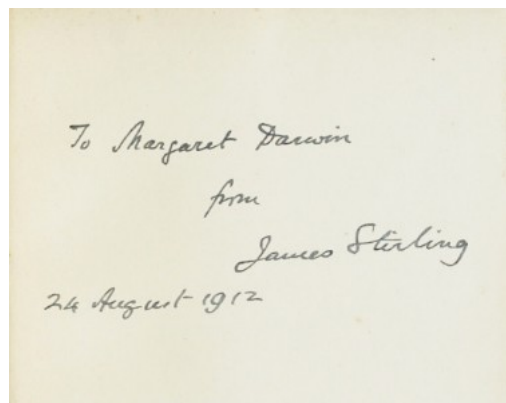 To Margaret Darwin
from
James Stirling
24 August 1912